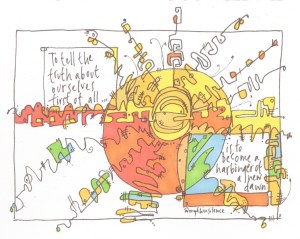 To tell the
truth about
ourselves,
first of all...
is to
become a
harbinger of
a new
dawn